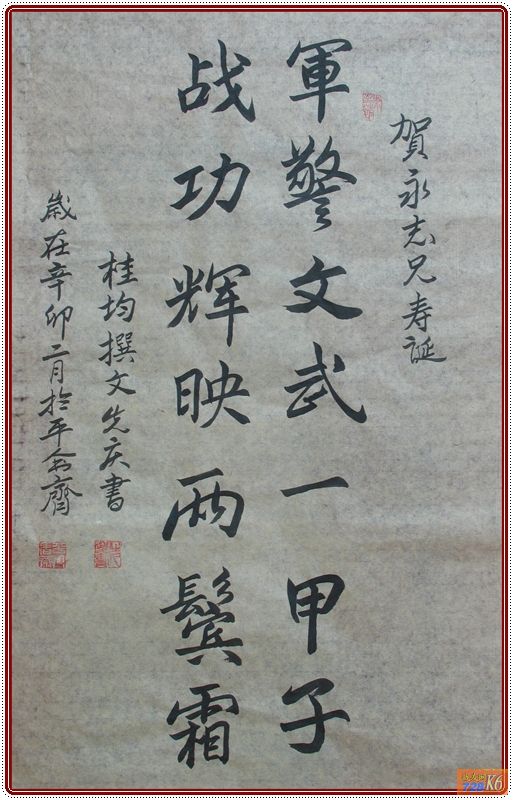 賀永志兄寿誕
軍警文武一甲子
战功辉映两鬓霜
桂均撰文先庆書
歲在辛卯二月於平舍齋
K6